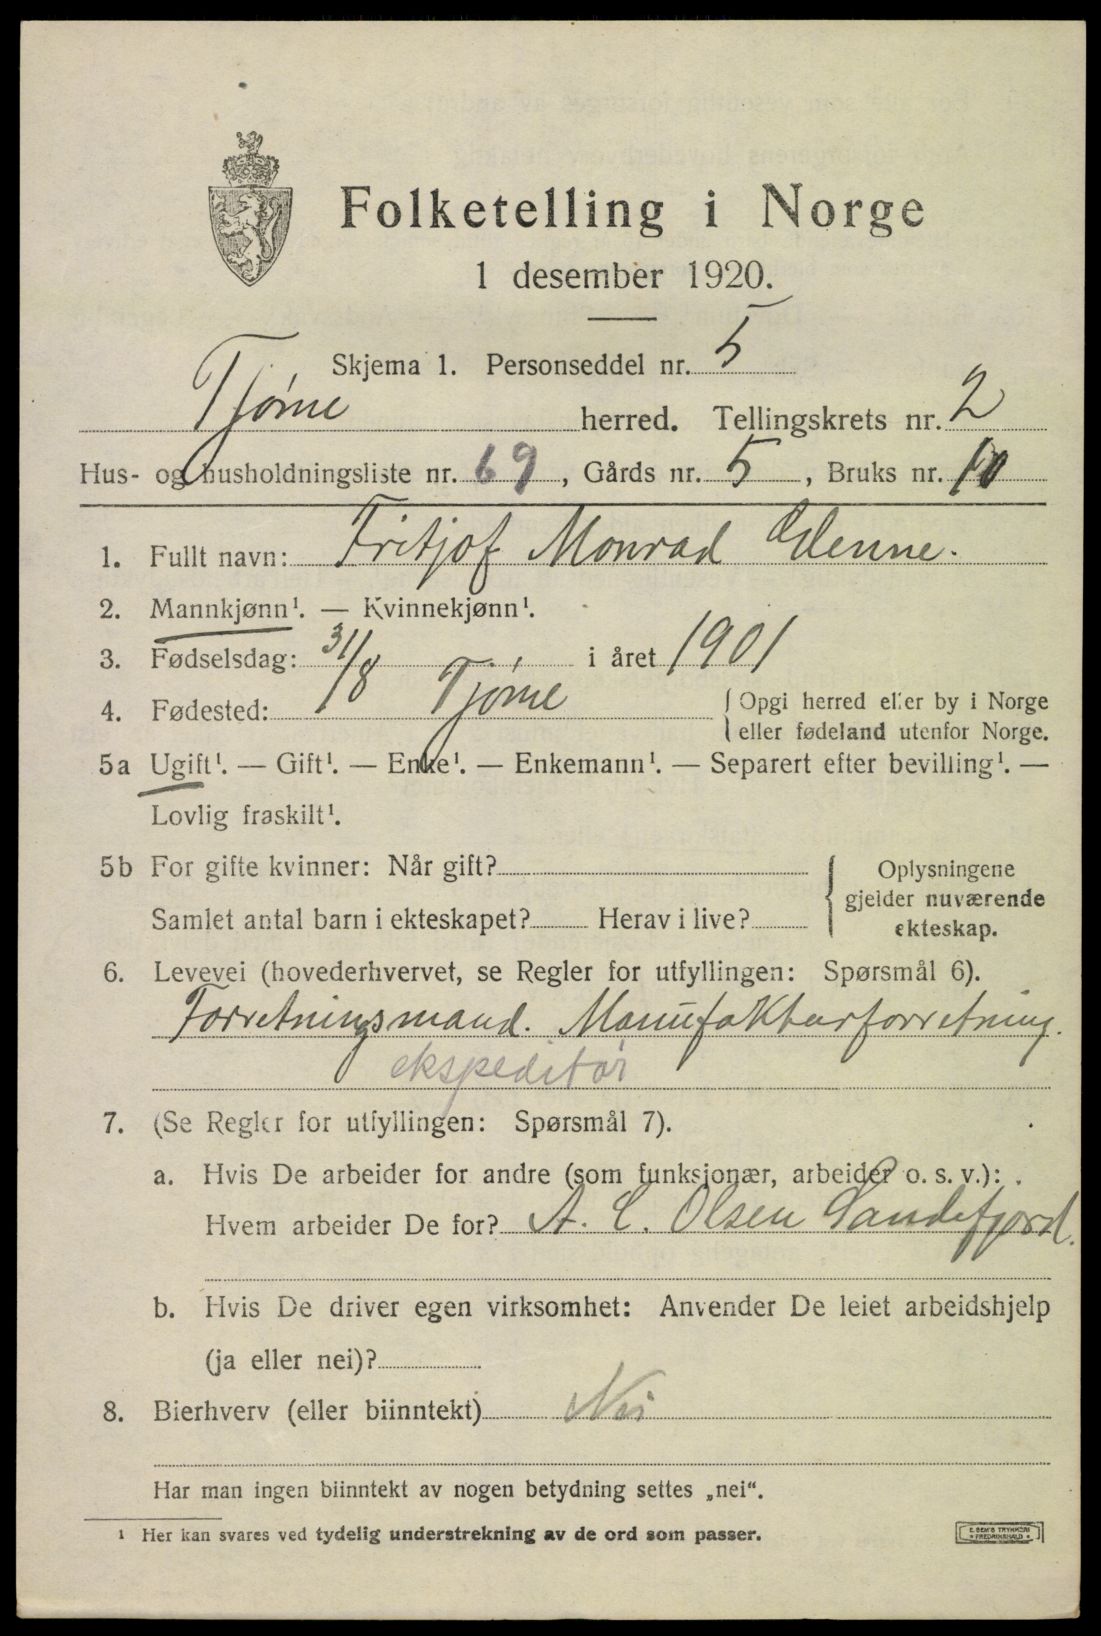 Folketelling i Norge
1 desember 1920.
Skjema 1. Personseddel nr. 5
Tjøme herred. Tellingskrets nr. 2
Hus- og husholdningsliste nr. 69, Gårds nr. 5, Bruks nr. 10
1. Fullt navn: Fritjof Monrad Glenne.
2. Mannkjønn¹. — Kvinnekjønn¹.
3. Fødselsdag: 31/8 i året 1901
4. Fødested: Tjøme { Opgi herred eller by i Norge
eller fødeland utenfor Norge.
5a Ugift¹. — Gift¹. — Enke¹. — Enkemann¹. — Separert efter bevilling¹. —
Lovlig fraskilt¹.
5b For gifte kvinner: Når gift? { Oplysningene
gjelder nuværende
Samlet antal barn i ekteskapet? Herav i live? ekteskap.
6. Levevei (hovederhvervet, se Regler for utfyllingen: Spørsmål 6).
Forretningsmand. Manufakturforretning.
ekspeditør
7. (Se Regler for utfyllingen: Spørsmål 7).
a. Hvis De arbeider for andre (som funksjonær, arbeider o. s. v.):
Hvem arbeider De for? A. C. Olsen Sandefjord.
b. Hvis De driver egen virksomhet: Anvender De leiet arbeidshjelp
(ja eller nei)?
8. Bierhverv (eller biinntekt) Nei
Har man ingen biinntekt av nogen betydning settes „nei“.
¹ Her kan svares ved tydelig understrekning av de ord som passer.
E. SEM'S TRYKKERI
FREDRIKSHALD